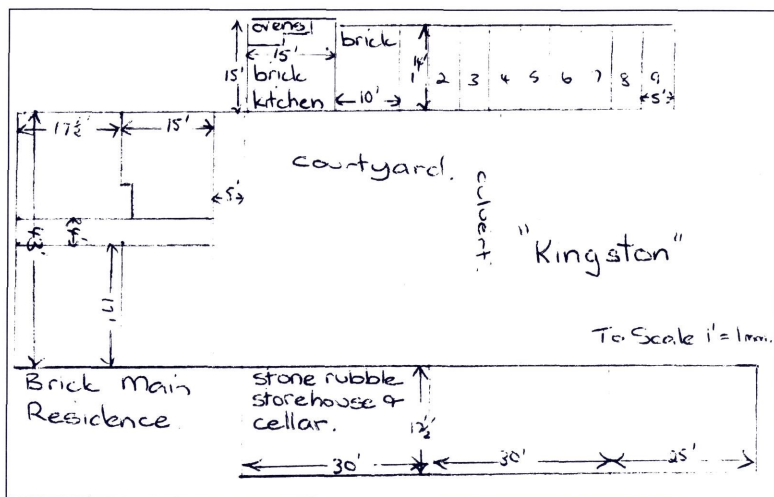 ovens
15'
brick
15'
brick
kitchen
10'
14'
1 2 3 4 5 6 7 8 9
5'
17½'
15'
courtyard.
culvert.
5'
"Kingston"
43'
4'
17'
To Scale 1' = 1mm.
Brick Main
Residence
stone rubble
storehouse &
cellar.
12½'
30'
30'
25'